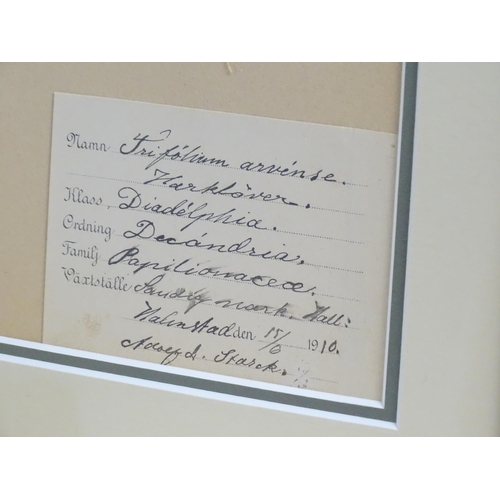 Namn Trifólium arvénse.
Harklöver.
Klass. Diadélphia.
Ordning Decándria.
Familj Papilionaceæ.
Växtställe Sandig mark. Hall:
Halmstad den 15/6 1910.
Adolf A. Starck.